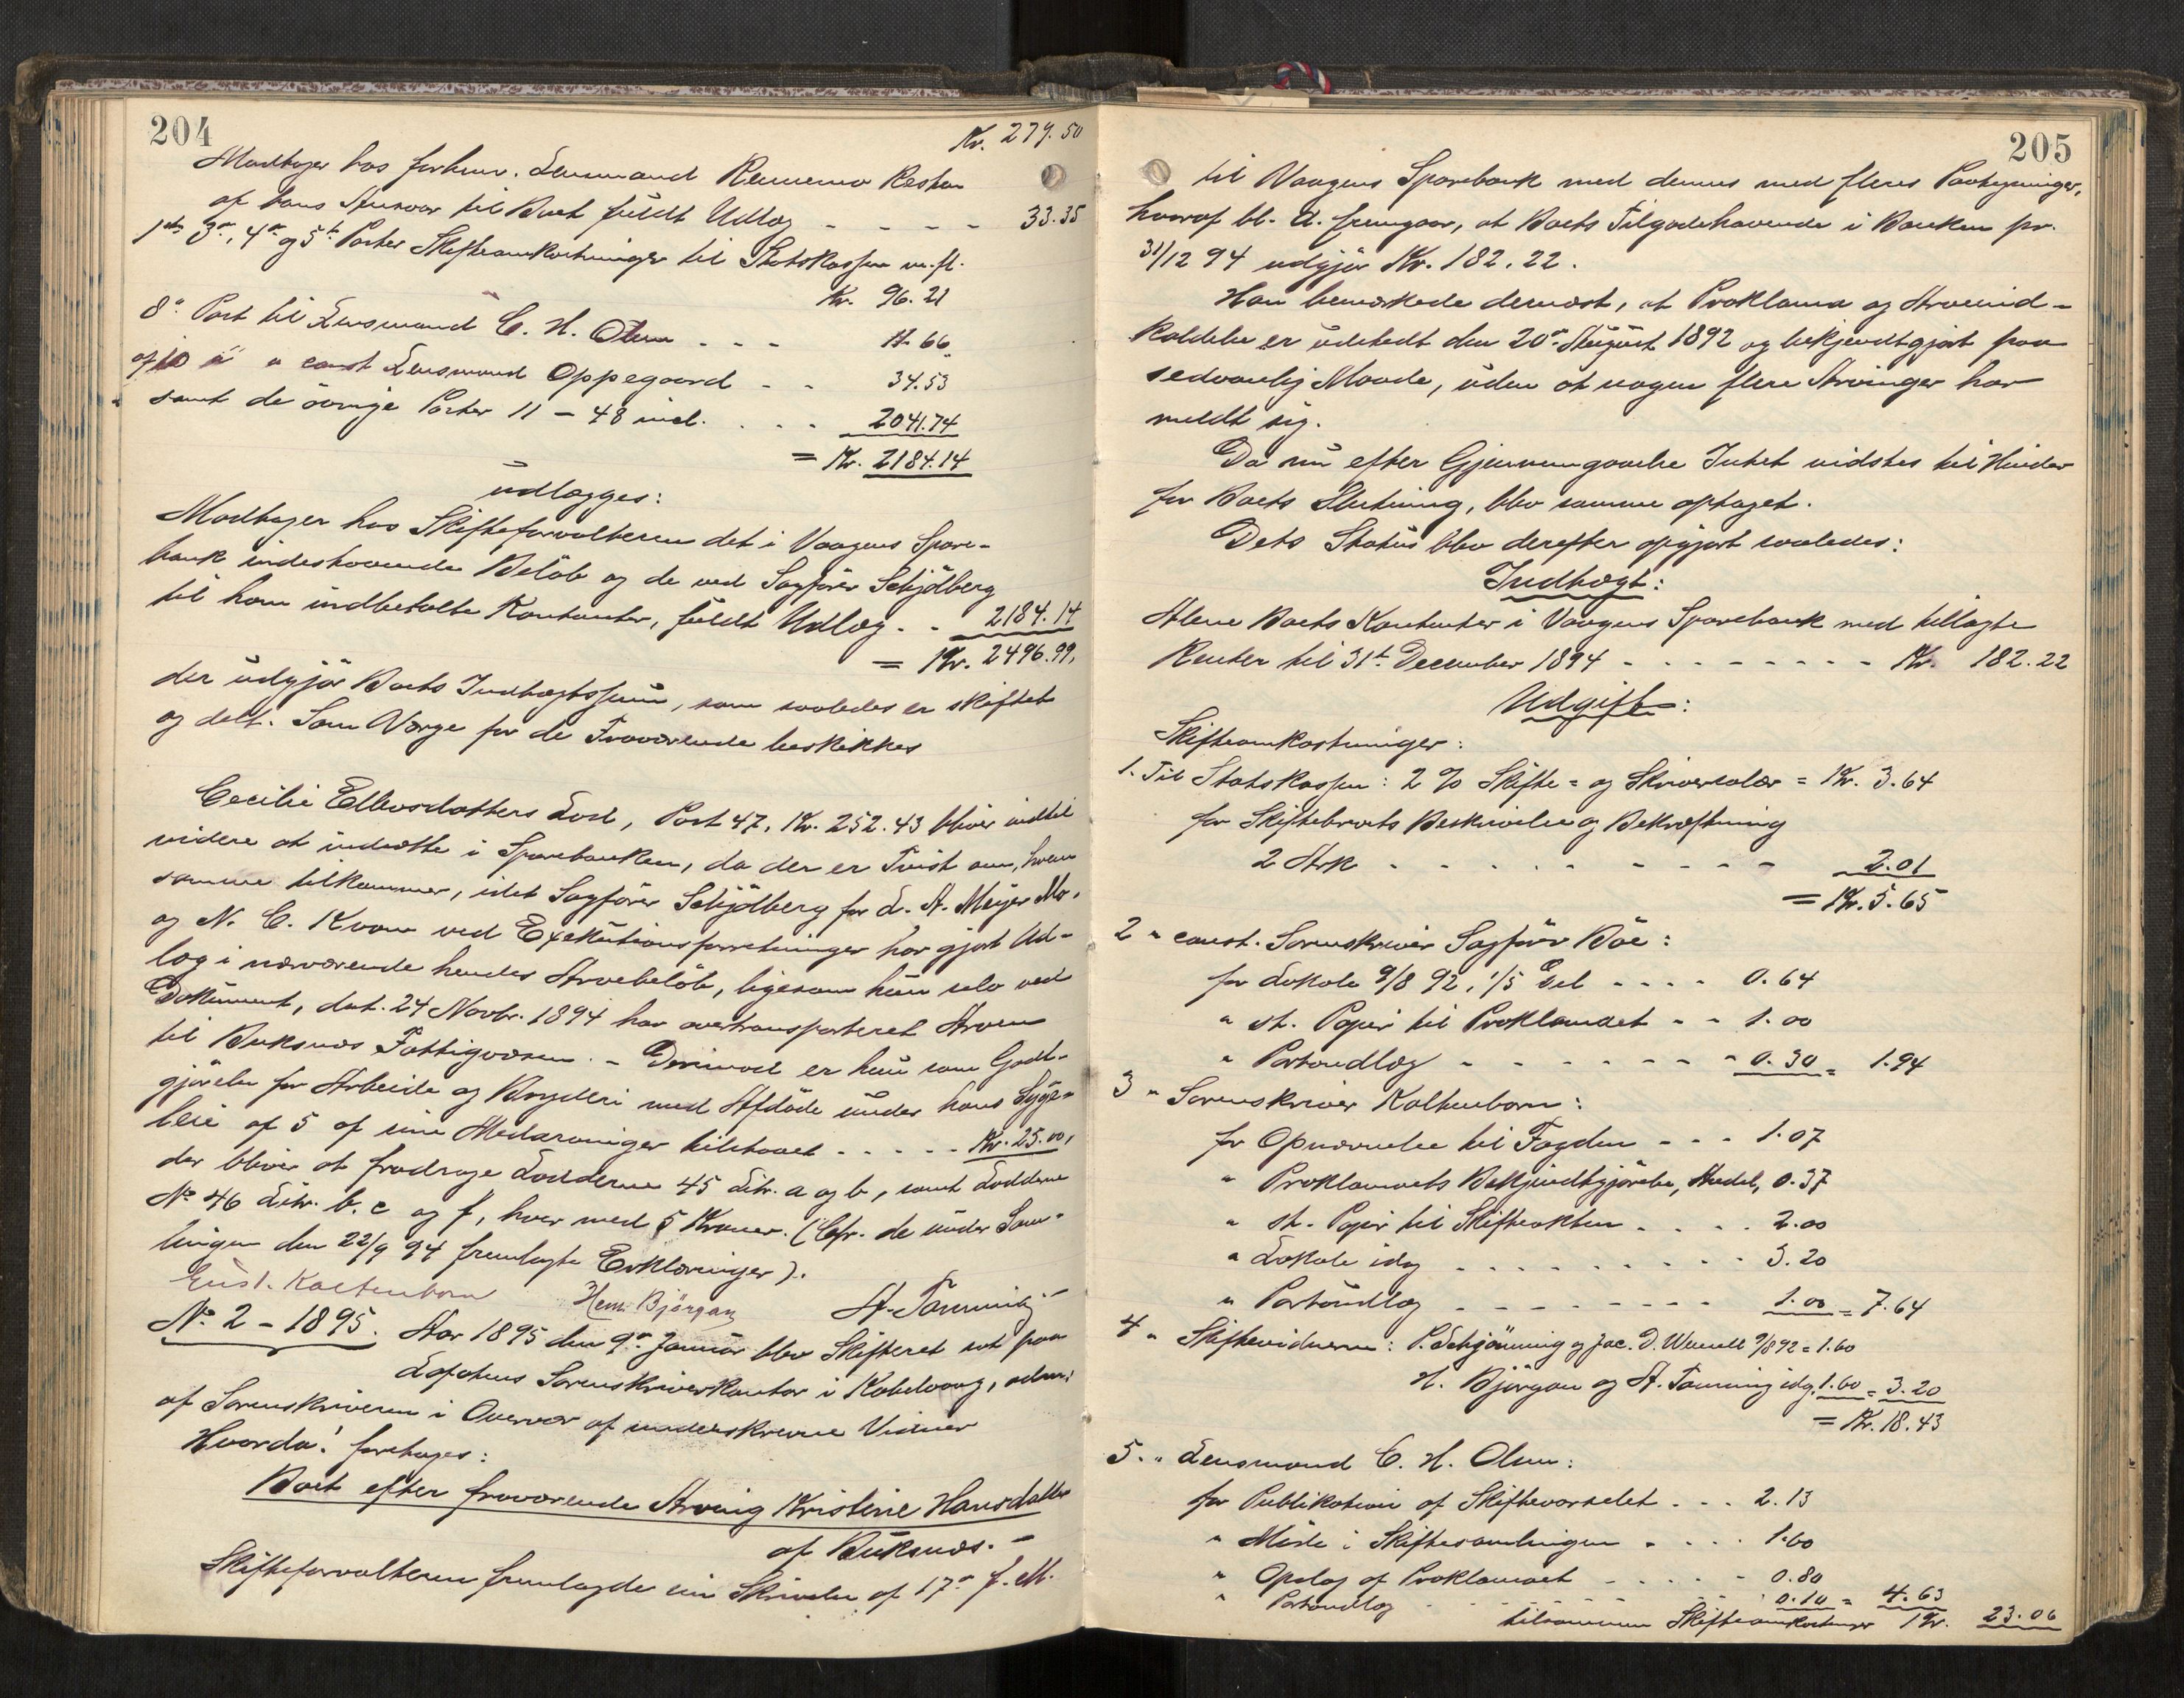 204
Kr. 279.50
Modtager hos forhenv. Lensmand Rennemo Resten
af hans Ansvar til Boet fuldt Udlæg - - - - 33.35
1ste 3die, 4de og 5te Poster Skifteomkostninger til Statskassen m.fl.
Kr. 96.21
8de Post til Lensmand C. H. Olsen - - - 11.66
af 10 " " const Lensmand Oppegaard - - 34.53
samt de øvrige Poster 11 - 48 incl. . . . - 2041.74
= Kr. 2184.14
udlægges:
Modtager hos Skifteforvalteren det i Vaagens Spare-
bank indestaaende Beløb og de ved Sagfører Schjølberg
til ham indbetalte Kontanter, fuldt Udlæg - - 2184.14
= Kr. 2496.99,
der udgjør Boets Indtægtssum, som saaledes er skiftet
og delt. Som Værge for de Fraværende beskikkes
Cecilie Ellevsdatters Lod, Post 47, Kr. 252.43 bliver indtil
videre at indsætte i Sparebanken, da der er Tvist om, hvem
samme tilkommer, idet Sagfører Schjølberg for L. A. Meyer Mo,
og N. C. Kvam ved Exekutionsforretninger har gjort Ud-
læg i nærværende hendes Arvebeløb, ligesom hun selv ved
Dokument, dat. 24 Novbr. 1894 har overtransporteret Arven
til Buksnæs Fattigvæsen. - Derimod er hun som Godt-
gjørelse for Arbeide og Bryderi med Afdøde under hans Syge-
leie af 5 af sine Medarvinger tilstaaet - - - - - Kr. 25.00,
der bliver at fradrage Lodderne 45 Litr. a og b, samt Lodderne
No 46 Litr. b. c og f, hver med 5 Kroner. (Cfr. de under Sam-
lingen den 22/9 94 fremlagte Erklæringer).
Eust. Kaltenborn Hem. Bjørgan A. Tønning
No 2 - 1895. Aar 1895 den 9de Januar blev Skifteret sat paa
Lofotens Sorenskriverkontor i Kabelvaag, adm:
af Sorenskriveren i Overvær af underskrevne Vidner
Hvorda! foretages:
Boet efter fraværende Arving Kristine Hansdatter
af Buksnæs. -
Skifteforvalteren fremlagde sin Skrivelse af 17de f. M.
205
til Vaagens Sparebank med dennes med fleres Paategninger,
hvoraf bl. A. fremgaar, at Boets Tilgodehavende i Banken pr.
31/12 94 udgjør Kr. 182.22.
Han bemærkede dernæst, at Proklama og Arveind-
kaldelse er udstedt den 20de August 1892 og bekjendtgjort paa
sedvanlig Maade, uden at nogen flere Arvinger har
meldt sig.
Da nu efter Gjennemgaaelse Intet vidstes til Hinder
for Boets Slutning, blev samme optaget.
Dets Status blev derefter opgjort saaledes:
Indtægt:
Alene Boets Kontanter i Vaagens Sparebank med tillagte
Renter til 31te December 1894 - - - - - - - - Kr. 182.22
Udgift:
Skifteomkostninger:
1. Til Statskassen: 2 % Skifte= og Skriversalær = Kr. 3.64
for Skiftebrevets Beskrivelse og Bekræftning
2 Ark - - - - - - - - - 2.01
= Kr. 5.65
2 " const. Sorenskriver Sagfører Bøe:
for Lokale 9/8 92, 1/5 Del - - - - 0.64
" st. Papir til Proklamaet - - 1.00
" Portoudlæg - - - - - - - 0.30 = 1.94
3 " Sorenskriver Kaltenborn:
for Opnævnelse til Fogden - - - 1.07
" Proklamaets Bekjendtgjørelse, Andel, 0.37
" st. Papir til Skifteakten . . . . 2.00
" Lokale idag . . . . . . . . 3.20
" Portoudlæg - - - - - - - 1.00 = 7.64
4 " Skiftevidnerne: P. Schjønning og Jac. D. Wennell 9/8 92 = 1.60
H. Bjørgan og A. Tønning idag 1.60 = 3.20
= Kr. 18.43
5. " Lensmand C. H. Olsen:
for Publikation af Skiftevarselet . . . 2.13
" Møde i Skiftesamlingen . . . . 1.60
" Opslag af Proklamaet - - - - - 0.80
" Portoudlæg - - - - - - - 0.10 = 4.63
tilsammen Skifteomkostninger Kr. 23.06